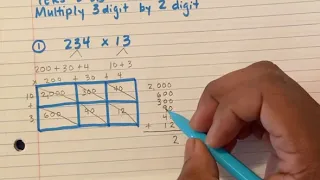 Multiply 3 digit by 2 digit
① 234 x 13
200+30+4 10+3
x 200 + 30 + 4
10 2,000 300 40
+
3 600 90 12
2,000
600
300
90
4
+ 12
2